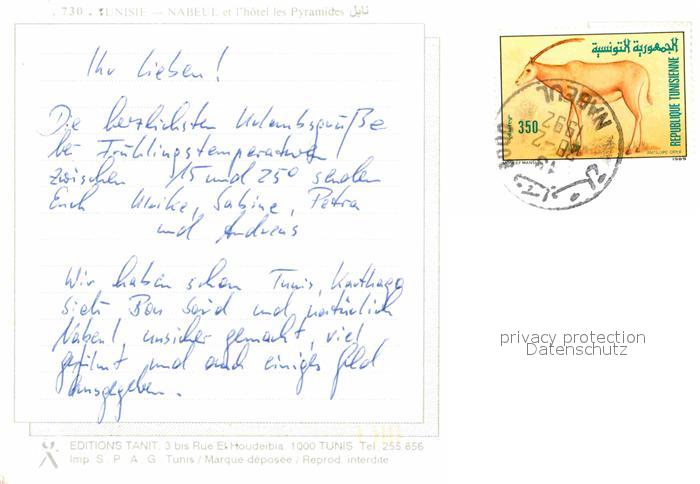 . 730 . TUNISIE — NABEUL et l'hôtel les Pyramides نابل
Ihr lieben!
Die herzlichsten Urlaubsgrüße
bei Frühlingstemperaturen
zwischen 15 und 25° senden
Euch Ulrike, Sabine, Petra
und Andreas
Wir haben schon Tunis, Karthago
Sidi Bou Said und natürlich
Nabeul, unsicher gemacht, viel
gefilmt und auch einiges Geld
ausgegeben.
EDITIONS TANIT, 3 bis Rue El Houdeibia. 1000 TUNIS Tel. 255 856
Imp. S. P. A. G. Tunis / Marque déposée / Reprod. interdite
الجمهورية التونسية
REPUBLIQUE TUNISIENNE
350
ANTILOPE ORYX
1989
NABEUL
1992
privacy protection
Datenschutz